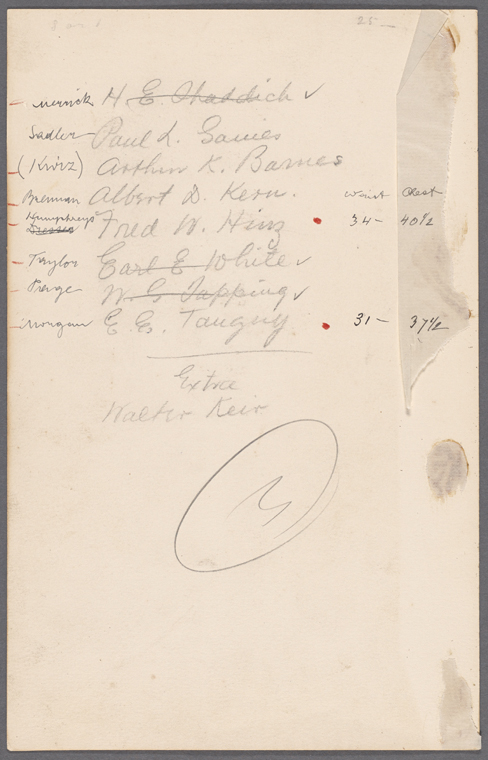 25 —
Merrick H. E. Shaddich ✓
Sadler — Paul L. Gaines
(Kurz) Arthur K. Barnes
Brennan Albert D. Kern. Waist Chest
Humphreys Fred W. Hinz • 34 — 40½
Taylor Earl E White ✓
Page W. G. Tapping ✓
Morgan E. E. Tanguy • 31 — 37½
Extra
Walter Keir